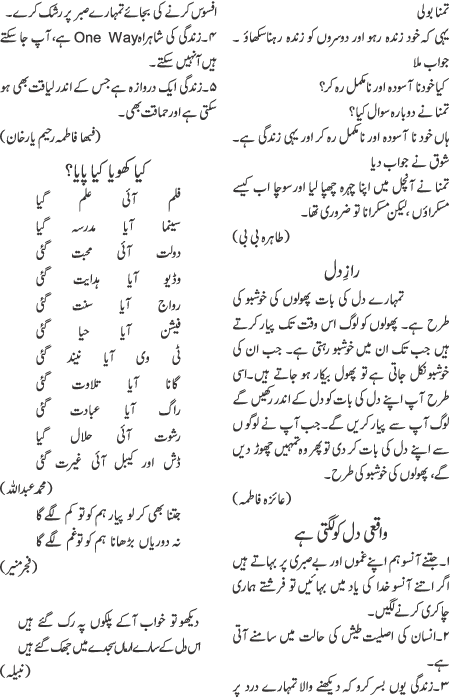 تمنا بولی
یہی کہ خود زندہ رہو اور دوسروں کو زندہ رہنا سکھاؤ ۔
جواب ملا
کیا خود نا آسودہ اور نا مکمل رہ کر؟
تمنا نے دوبارہ سوال کیا؟
ہاں خود نا آسودہ اور نا مکمل رہ کر اور یہی زندگی ہے۔
شوق نے جواب دیا
تمنا نے آنچل میں اپنا چہرہ چھپا لیا اور سوچا اب کیسے
مسکراؤں ،لیکن مسکرانا تو ضروری تھا۔
(طاہرہ بی بی)
رازِ دل
تمہارے دل کی بات پھولوں کی خوشبو کی
طرح ہے۔ پھولوں کو لوگ اس وقت تک پیار کرتے
ہیں جب تک ان میں خوشبو رہتی ہے۔ جب ان کی
خوشبو نکل جاتی ہے تو پھول بیکار ہو جاتے ہیں۔اسی
طرح آپ اپنے دل کی بات کو دل کے اندر رکھیں گے
لوگ آپ سے پیار کریں گے۔ جب آپ نے لوگوں
سے اپنے دل کی بات کر دی تو پھر وہ تمہیں چھوڑ دیں
گے، پھولوں کی خوشبو کی طرح۔
(عائزہ فاطمہ)
واقعی دل کو لگتی ہے
۱۔جتنے آنسو ہم اپنے غموں اور بے صبری پر بہاتے ہیں
اگر اتنے آنسو خدا کی یاد میں بہائیں تو فرشتے ہماری
چاکری کرنے لگیں۔
۲۔انسان کی اصلیت طیش کی حالت میں سامنے آتی
ہے۔
۳۔زندگی یوں بسر کرو کہ دیکھنے والا تمہارے درد پر
افسوس کرنے کی بجائے تمہارے صبر پر رشک کرے۔
۴۔زندگی کی شاہراہ One Way ہے، آپ جا سکتے
ہیں آ نہیں سکتے۔
۵۔زندگی ایک دروازہ ہے جس کے اندر لیاقت بھی ہو
سکتی ہے اور حماقت بھی۔
(فبھا فاطمہ رحیم یار خان)
کیا کھویا کیا پایا؟
فلم آئی علم گیا
سینما آیا مدرسہ گیا
دولت آئی محبت گئی
وڈیو آیا ہدایت گئی
رواج آیا سنت گئی
فیشن آیا حیا گئی
ٹی وی آیا نیند گئی
گانا آیا تلاوت گئی
راگ آیا عبادت گئی
رشوت آئی حلال گیا
ڈش اور کیبل آئی غیرت گئی
(محمد عبداللہ)
جتنا بھی کر لو پیار ہم کو تو کم لگے گا
نہ دوریاں بڑھانا ہم کو تو غم لگے گا
(فجر منیر)
دیکھو تو خواب آ کے پلکوں پہ رک گئے ہیں
اس دل کے سارے ارماں سجدے میں جھک گئے ہیں
(نبیلہ)